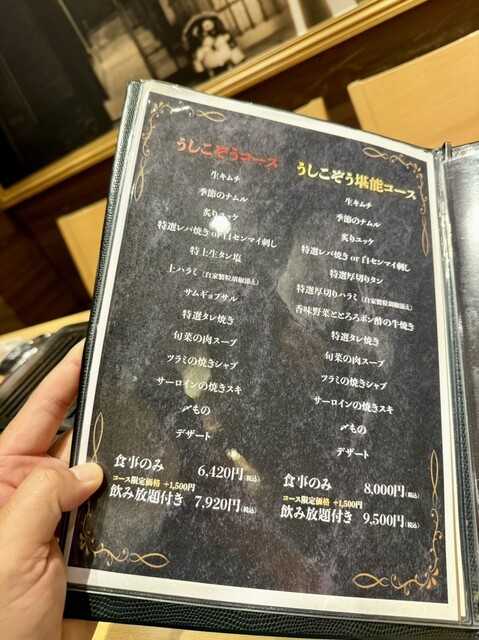 うしこぞうコース
生キムチ
季節のナムル
炙りユッケ
特選レバ焼き or 白センマイ刺し
特上生タン塩
上ハラミ (自家製粒胡椒添え)
サムギョプサル
特選タレ焼き
旬菜の肉スープ
ツラミの焼きシャブ
サーロインの焼きスキ
〆もの
デザート
食事のみ 6,420円(税込)
コース限定価格 +1,500円
飲み放題付き 7,920円(税込)
うしこぞう堪能コース
生キムチ
季節のナムル
炙りユッケ
特選レバ焼き or 白センマイ刺し
特選厚切りタン
特選厚切りハラミ (自家製粒胡椒添え)
香味野菜ととろろポン酢の牛焼き
特選タレ焼き
旬菜の肉スープ
ツラミの焼きシャブ
サーロインの焼きスキ
〆もの
デザート
食事のみ 8,000円(税込)
コース限定価格 +1,500円
飲み放題付き 9,500円(税込)